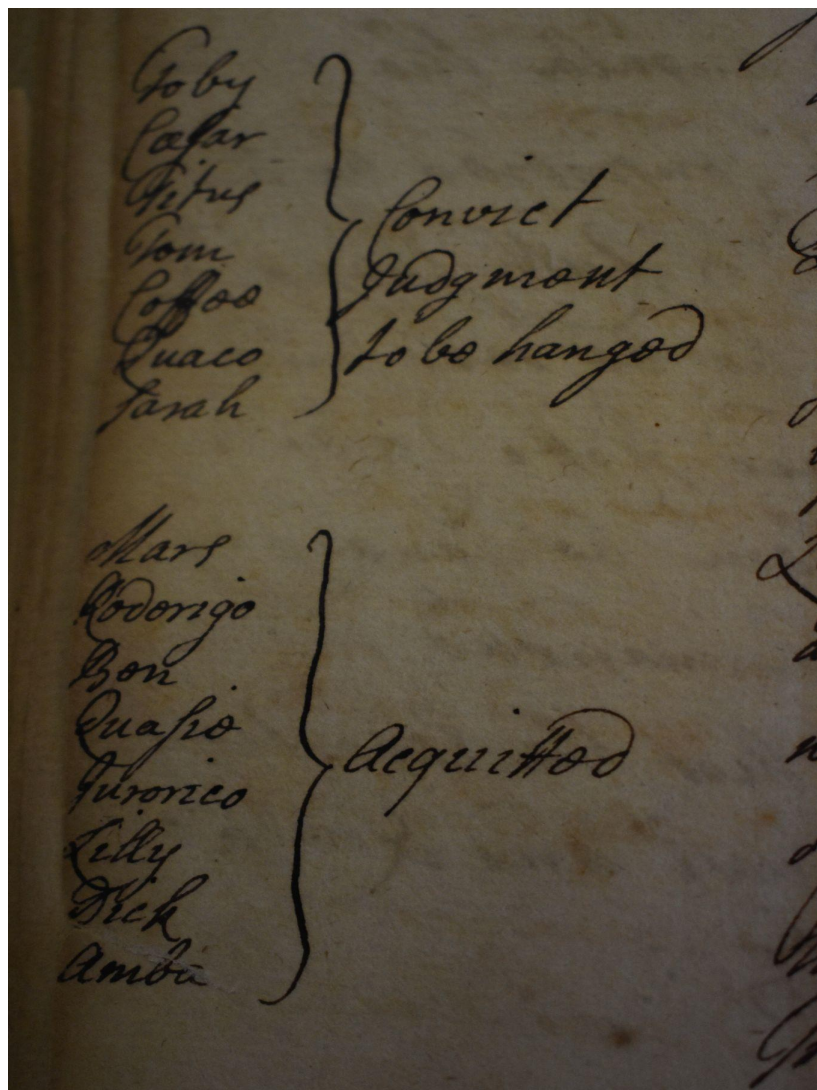 Toby
Cæsar
Titus
Tom
Coffee
Quaco
Sarah
Convict
Judgment
to be hanged
Mars
Roderigo
Ben
Quasie
Lilly
Dick
Amba
Acquitted